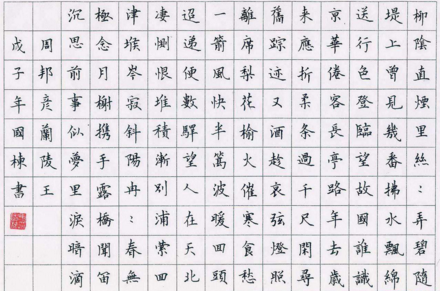 柳陰直煙里絲：弄碧隨
堤上曾見幾番拂水飄綿
送行色登臨望故國誰識
京華倦客長亭路年去歲
來應折柔条過千尺閑尋
舊踪迹又酒趁哀弦燈照
離席梨花榆火催寒食愁
一箭風快半篙波暖回頭
迢遞便數驛望人在天北
凄惻恨堆積漸別浦縈回
津堠岑寂斜陽冉：春無
極念月榭携手露橋聞笛
沉思前事似夢里淚暗滴
周邦彥蘭陵王
戊子年國棟書